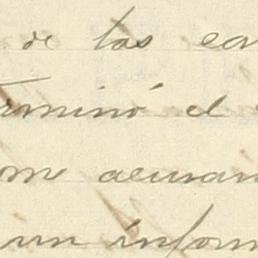 de los ca
terminó el
me acusan
un inform